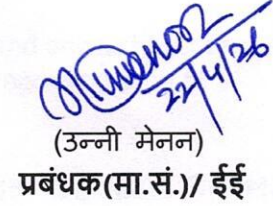 22/4/26
(उन्नी मेनन)
प्रबंधक(मा.सं.)/ ईई